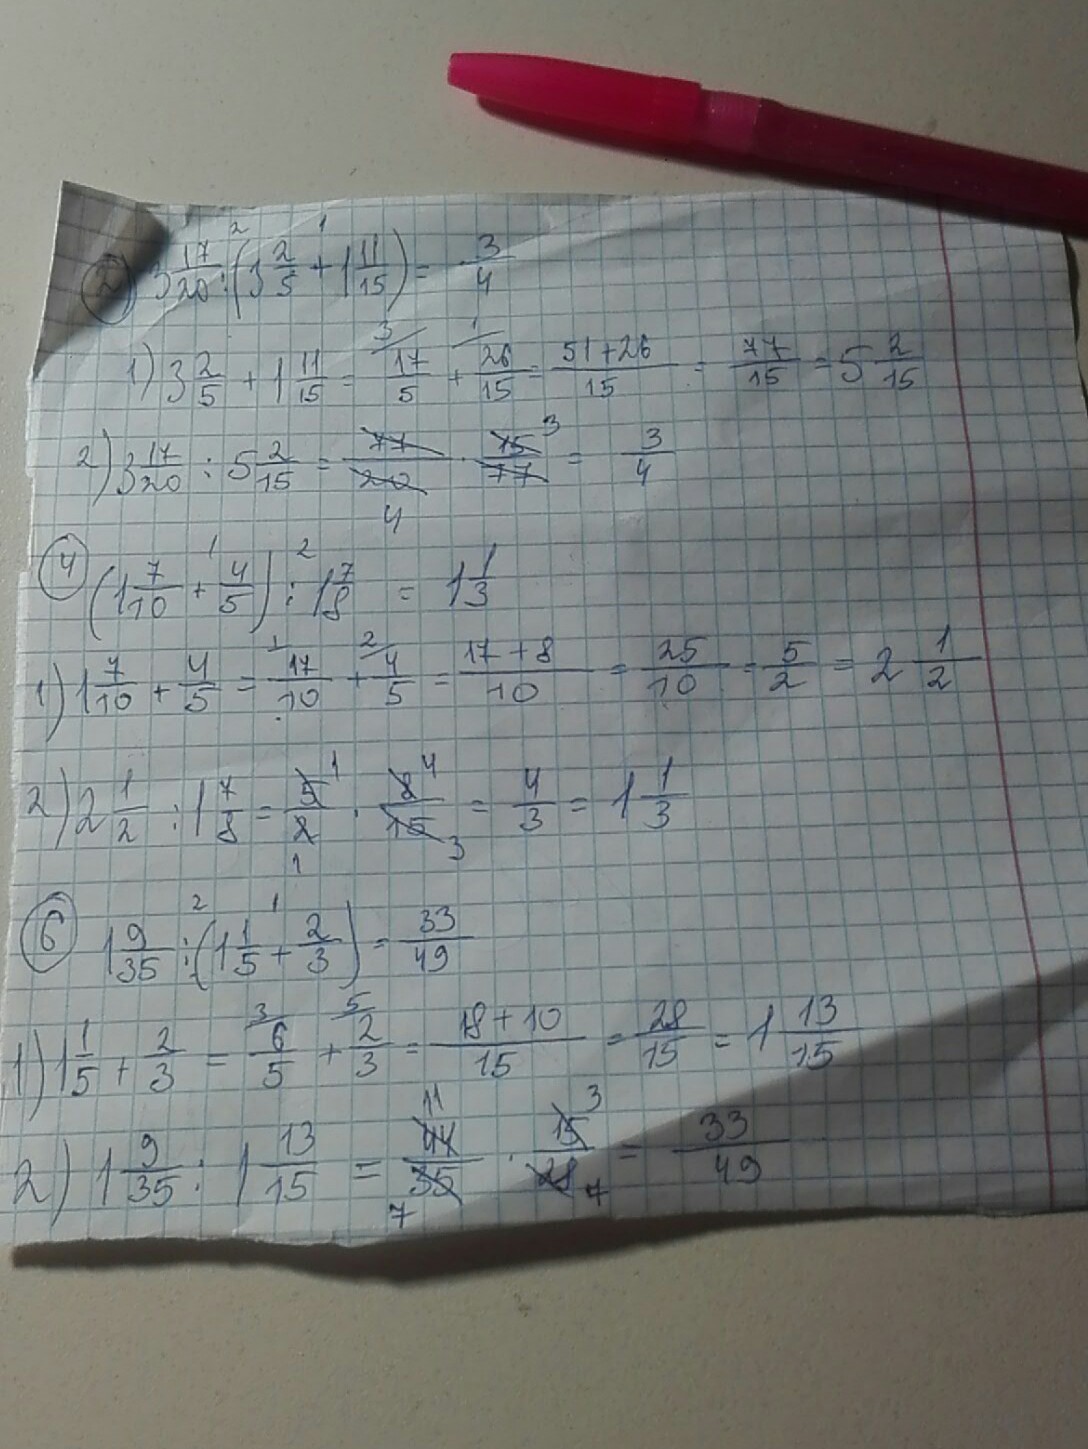 2) 3 17/20 : (3 2/5 + 1 11/15) = 3/4
1) 3 2/5 + 1 11/15 = 17/5 + 26/15 = 51+26/15 = 77/15 = 5 2/15
2) 3 17/20 : 5 2/15 = 77/20 · 15/77 = 3/4
4) (1 7/10 + 4/5) : 1 7/8 = 1 1/3
1) 1 7/10 + 4/5 = 17/10 + 4/5 = 17+8/10 = 25/10 = 5/2 = 2 1/2
2) 2 1/2 : 1 7/8 = 5/2 · 8/15 = 4/3 = 1 1/3
6) 1 9/35 : (1 1/5 + 2/3) = 33/49
1) 1 1/5 + 2/3 = 6/5 + 2/3 = 18+10/15 = 28/15 = 1 13/15
2) 1 9/35 : 1 13/15 = 44/35 · 15/28 = 33/49